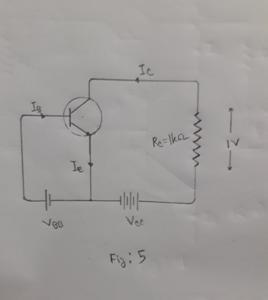 Ic
IB
IE
Rc=1kΩ
1V
VBB
Vcc
Fig: 5